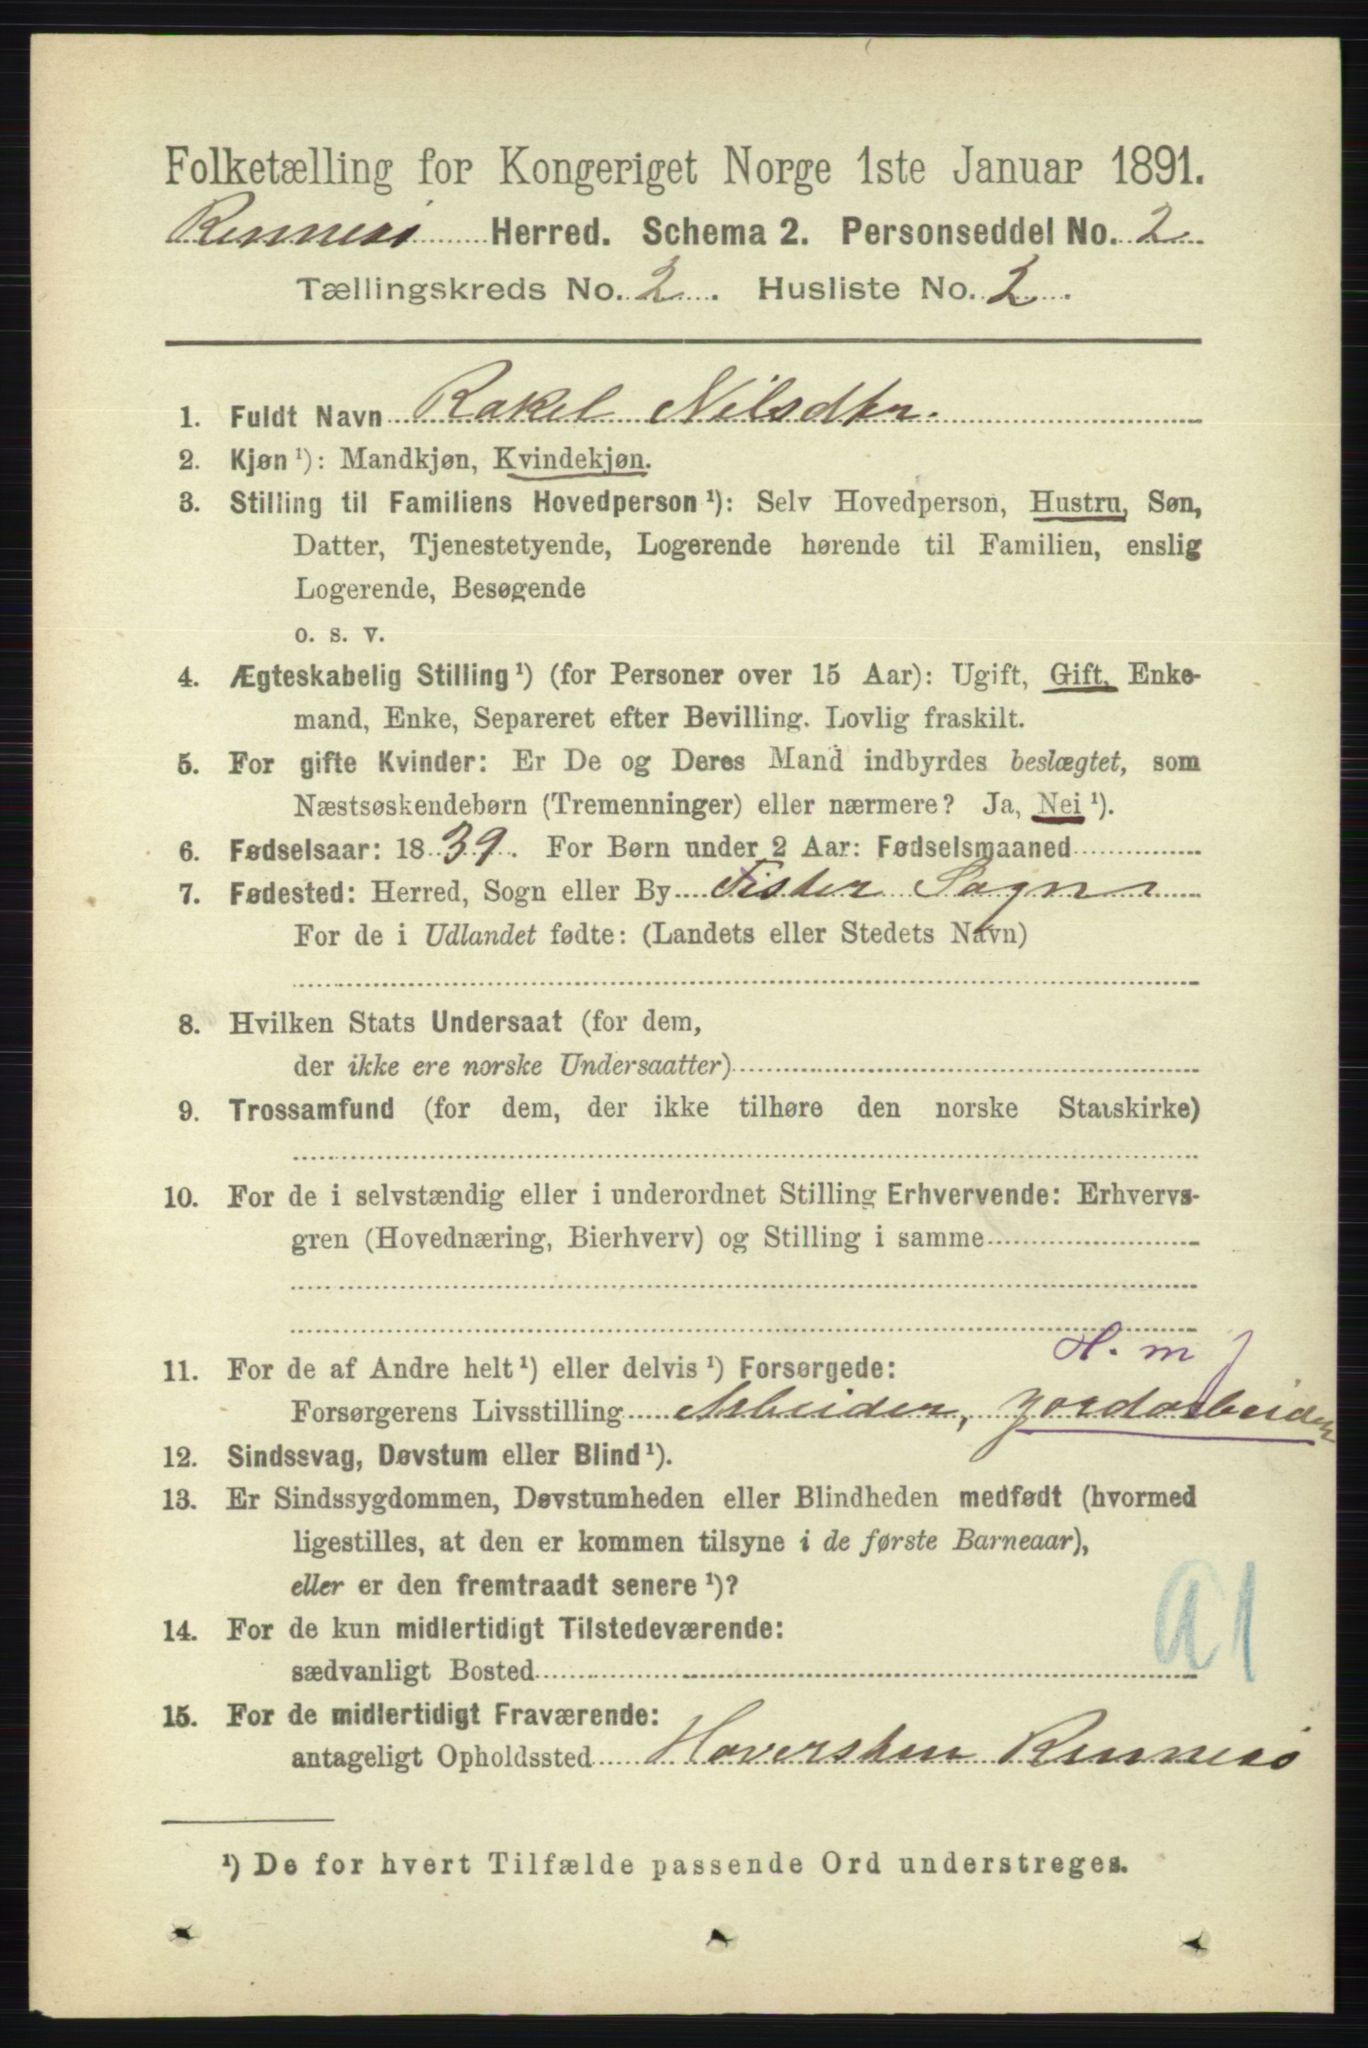 Folketælling for Kongeriget Norge 1ste Januar 1891.
Rennesø Herred. Schema 2. Personseddel No. 2
Tællingskreds No. 2. Husliste No. 2.
1. Fuldt Navn Rakel Nilsdtr.
2. Kjøn ¹): Mandkjøn, Kvindekjøn.
3. Stilling til Familiens Hovedperson ¹): Selv Hovedperson, Hustru, Søn,
Datter, Tjenestetyende, Logerende hørende til Familien, enslig
Logerende, Besøgende
o. s. v.
4. Ægteskabelig Stilling ¹) (for Personer over 15 Aar): Ugift, Gift, Enke-
mand, Enke, Separeret efter Bevilling. Lovlig fraskilt.
5. For gifte Kvinder: Er De og Deres Mand indbyrdes beslægtet, som
Næstsøskendebørn (Tremenninger) eller nærmere? Ja, Nei ¹).
6. Fødselsaar: 1839. For Børn under 2 Aar: Fødselsmaaned
7. Fødested: Herred, Sogn eller By Fister Sogn
For de i Udlandet fødte: (Landets eller Stedets Navn)
8. Hvilken Stats Undersaat (for dem,
der ikke ere norske Undersaatter)
9. Trossamfund (for dem, der ikke tilhøre den norske Statskirke)
10. For de i selvstændig eller i underordnet Stilling Erhvervende: Erhvervs-
gren (Hovednæring, Bierhverv) og Stilling i samme
H. m
11. For de af Andre helt ¹) eller delvis ¹) Forsørgede:
Forsørgerens Livsstilling Arbeider, Jordarbeider
12. Sindssvag, Døvstum eller Blind ¹).
13. Er Sindssygdommen, Døvstumheden eller Blindheden medfødt (hvormed
ligestilles, at den er kommen tilsyne i de første Barneaar),
eller er den fremtraadt senere ¹)?
a 1
14. For de kun midlertidigt Tilstedeværende:
sædvanligt Bosted
15. For de midlertidigt Fraværende:
antageligt Opholdssted Haversten Rennesø
¹) De for hvert Tilfælde passende Ord understreges.